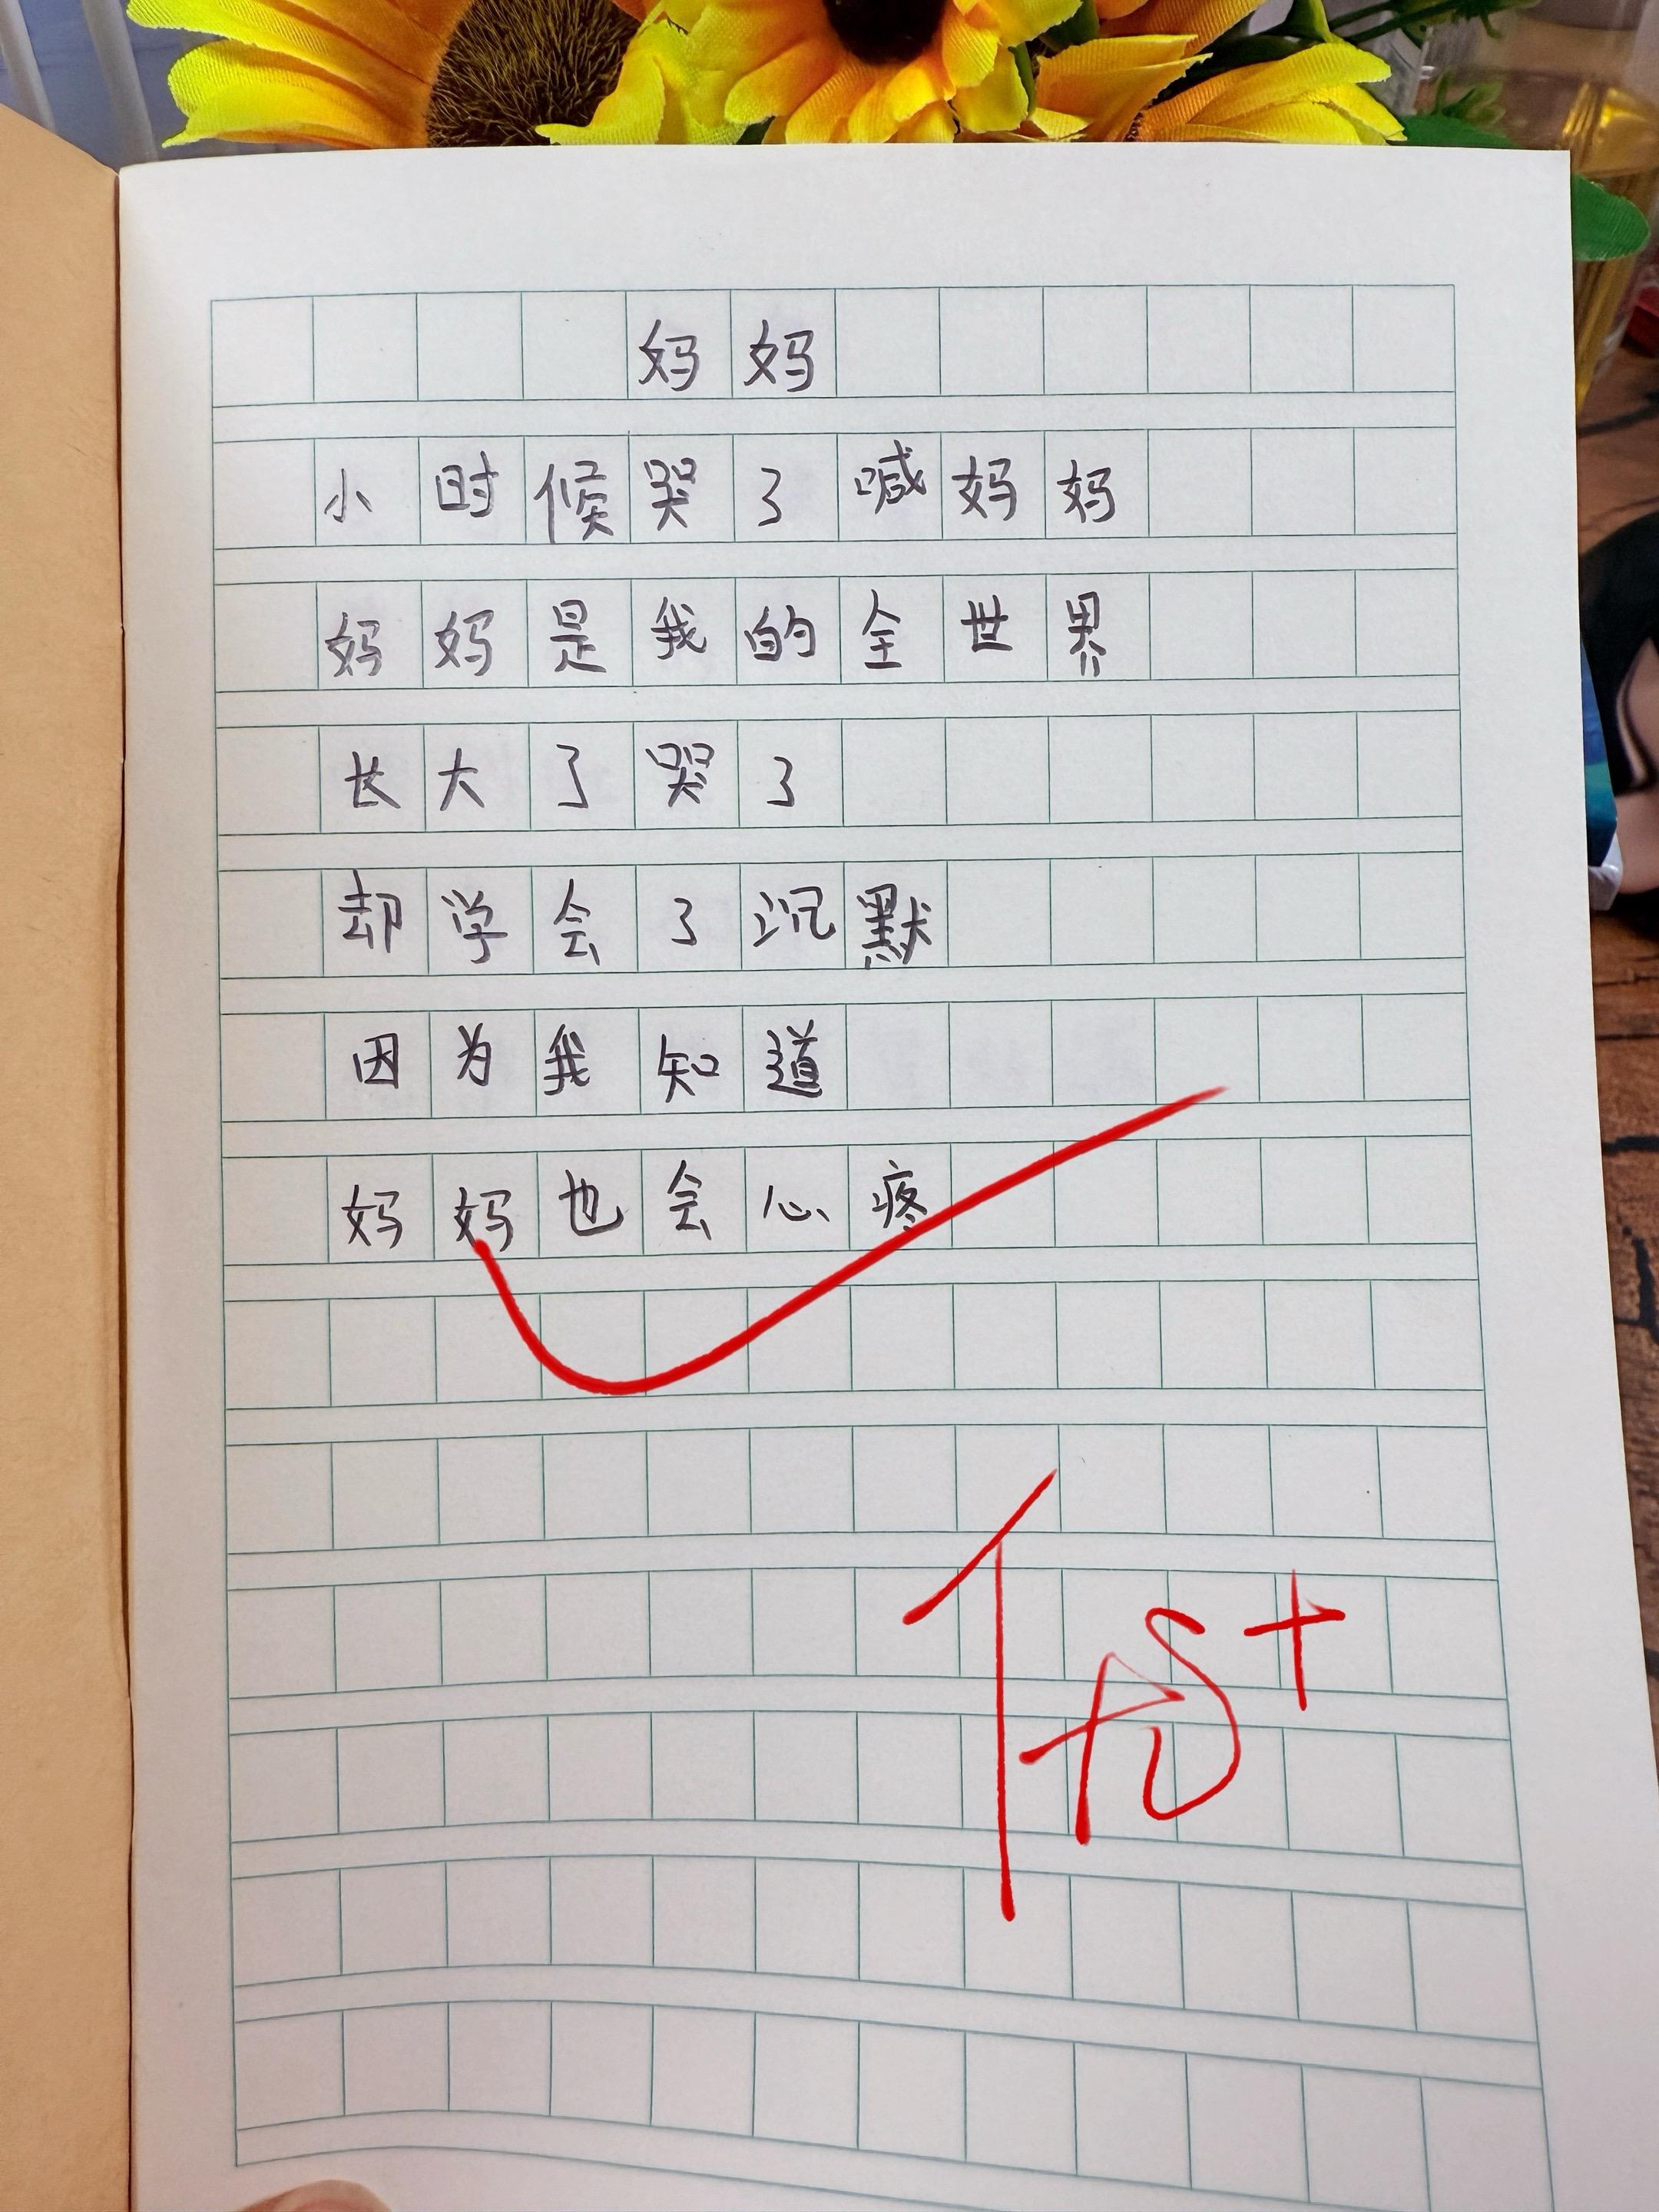 妈妈
小时候哭了喊妈妈
妈妈是我的全世界
长大了哭了
却学会了沉默
因为我知道
妈妈也会心疼
优+